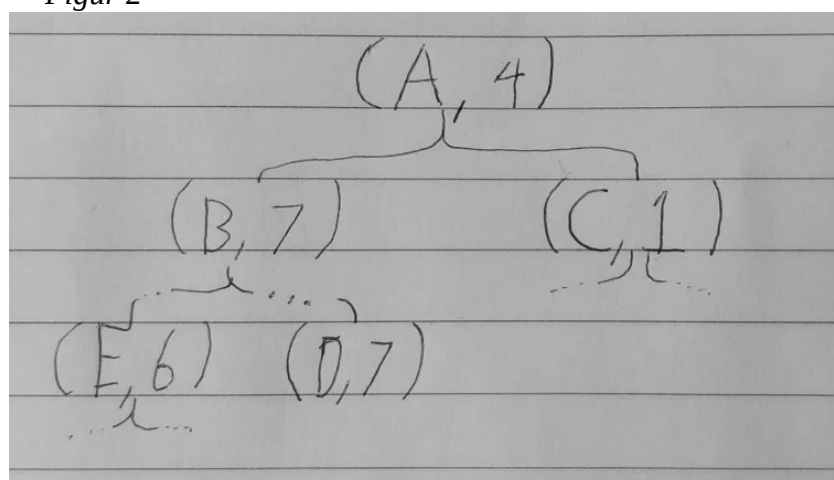 Figur 2
(A, 4)
(B, 7) (C, 1)
(E, 6) (D, 7)